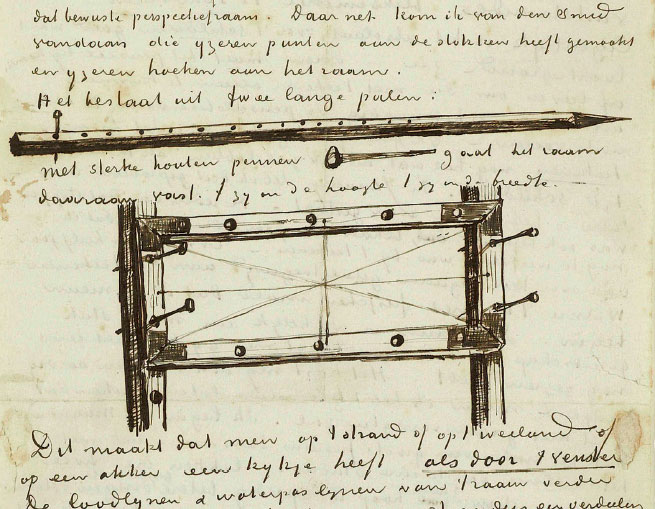 dat bewuste perspectiefraam. Daar net kom ik van den smid
vandaan die yzeren punten aan de stokken heeft gemaakt
en yzeren hoeken aan het raam.
Het bestaat uit twee lange palen:
met sterke houten pennen gaat het raam
daaraan vast. 't zy in de hoogte 't zy in de breedte. —
Dit maakt dat men op 't strand of op 't weiland of
op een akker een kykje heeft als door 't venster
De loodlynen & waterpaslynen van 't raam verder